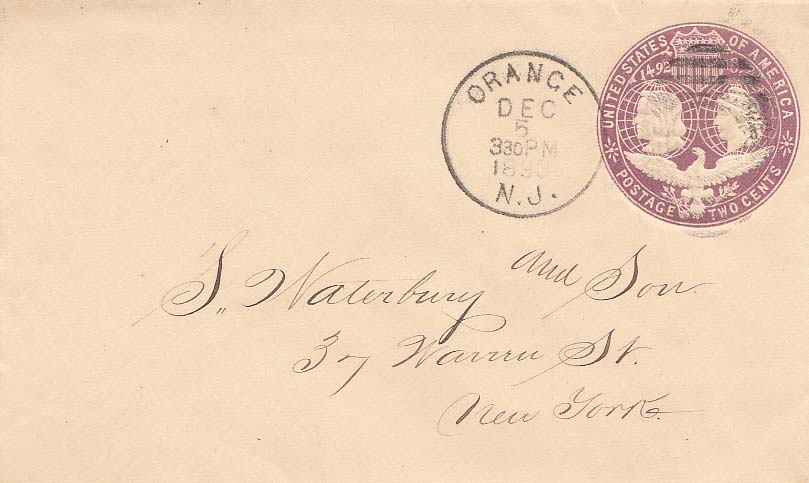 ORANGE
DEC
5
330PM
1893
N.J.
UNITED STATES OF AMERICA
1492
POSTAGE TWO CENTS
S. Waterbury and Son
37 Warren St.
New York.